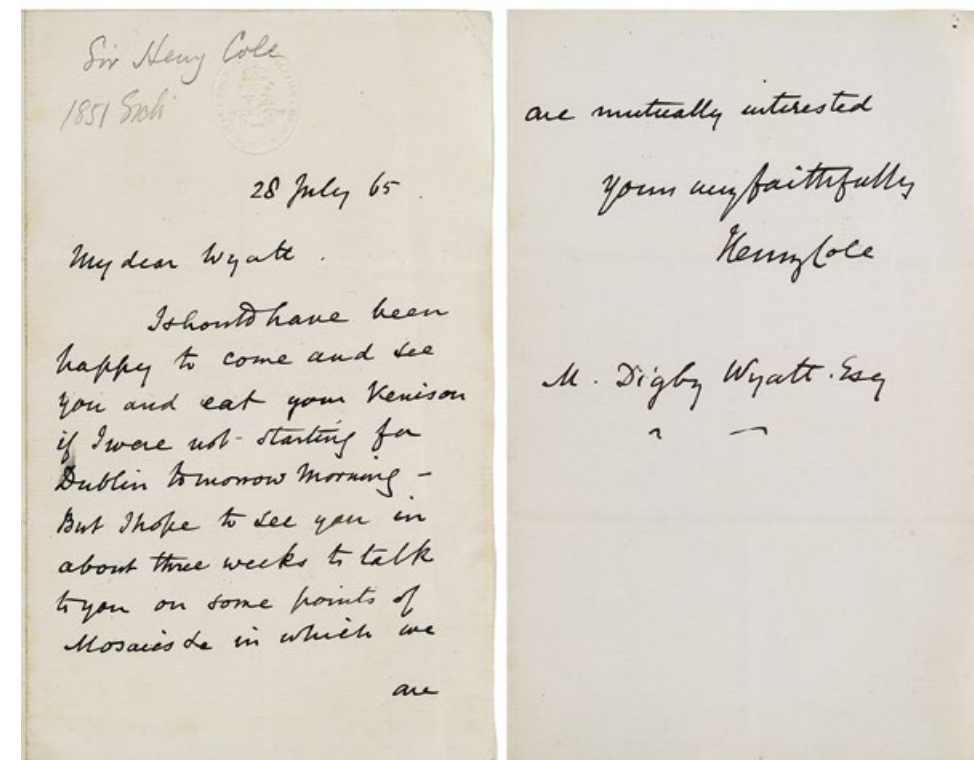 Sir Henry Cole
1851 Exh
28 July 65.
My dear Wyatt.
I should have been
happy to come and see
you and eat your Venison
if I were not starting for
Dublin tomorrow Morning -
But I hope to see you in
about three weeks to talk
to you on some points of
Mosaics &c in which we
are
are mutually interested
yours very faithfully
Henry Cole
M. Digby Wyatt. Esq